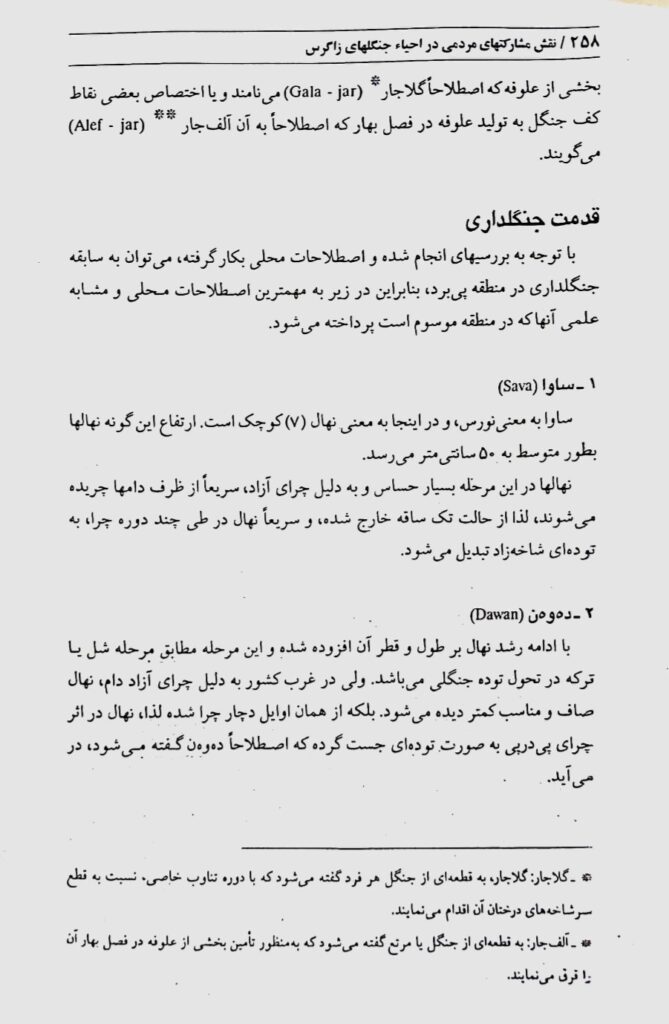 ۲۵۸ / نقش مشارکتهای مردمی در احیاء جنگلهای زاگرس
بخشی از علوفه که اصطلاحاً گلاجار* (Gala - jar) می‌نامند و یا اختصاص بعضی نقاط
کف جنگل به تولید علوفه در فصل بهار که اصطلاحاً به آن آلف‌جار** (Alef - jar)
می‌گویند.
قدمت جنگلداری
با توجه به بررسیهای انجام شده و اصطلاحات محلی بکار گرفته، می‌توان به سابقه
جنگلداری در منطقه پی‌برد، بنابراین در زیر به مهمترین اصطلاحات محلی و مشابه
علمی آنها که در منطقه موسوم است پرداخته می‌شود.
۱ ـ ساوا (Sava)
ساوا به معنی نورس، و در اینجا به معنی نهال (۷) کوچک است. ارتفاع این گونه نهالها
بطور متوسط به ۵۰ سانتی‌متر می‌رسد.
نهالها در این مرحله بسیار حساس و به دلیل چرای آزاد، سریعاً از ظرف دامها چریده
می‌شوند، لذا از حالت تک ساقه خارج شده، و سریعاً نهال در طی چند دوره چرا، به
توده‌ای شاخه‌زاد تبدیل می‌شود.
۲ ـ ده‌وه‌ن (Dawan)
با ادامه رشد نهال بر طول و قطر آن افزوده شده و این مرحله مطابق مرحله شل یا
ترکه در تحول توده جنگلی می‌باشد. ولی در غرب کشور به دلیل چرای آزاد دام، نهال
صاف و مناسب کمتر دیده می‌شود. بلکه از همان اوایل دچار چرا شده لذا، نهال در اثر
چرای پی‌درپی به صورت توده‌ای جست گرده که اصطلاحاً ده‌وه‌ن گفته می‌شود، در
می‌آید.
* ـ گلاجار: گلاجار، به قطعه‌ای از جنگل هر فرد گفته می‌شود که با دوره تناوب خاصی، نسبت به قطع
سرشاخه‌های درختان آن اقدام می‌نمایند.
* ـ آلف‌جار: به قطعه‌ای از جنگل یا مرتع گفته می‌شود که به‌منظور تأمین بخشی از علوفه در فصل بهار آن
را قرق می‌نمایند.